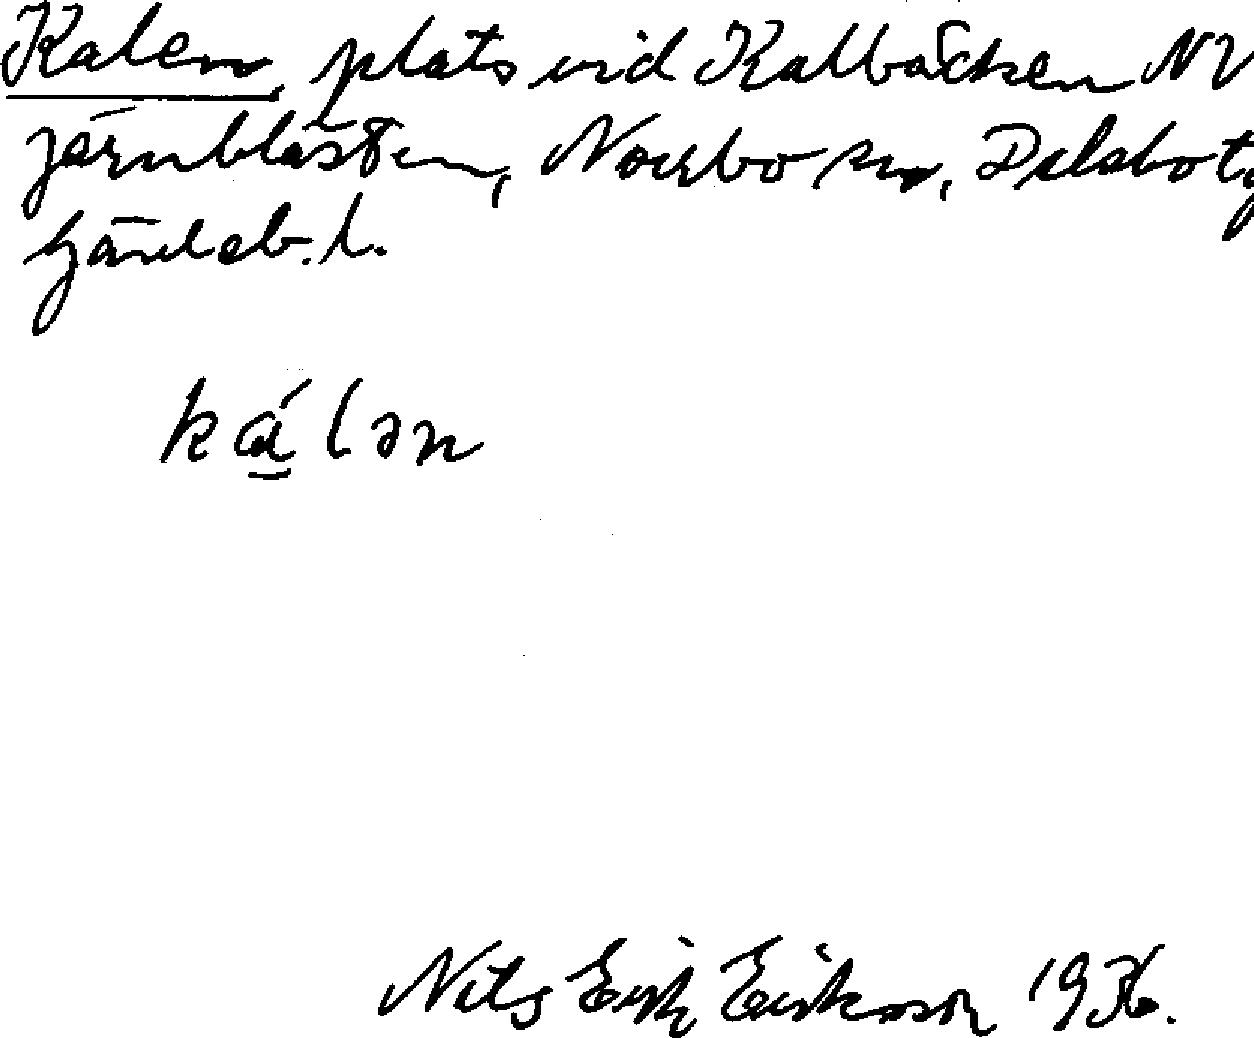 Kalen, plats vid Kalbäcken NV
järnblästen, Norrbo sn, Delsbo tg
Gävleb. l.
kálən
Nils Erik Eriksson 1936.